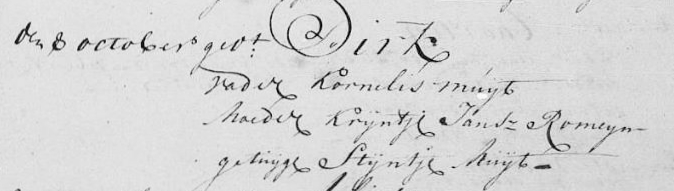 den 8 octobers gedt Dirk
vader Kornelis muijt
Moeder Krijntje Jans Romeijn
getuijge Stijntje Muijt